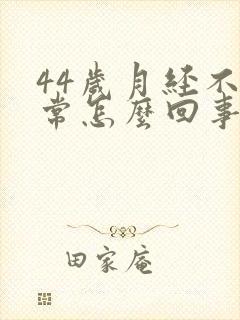 44歲月经不
常怎麼回事
田家庵